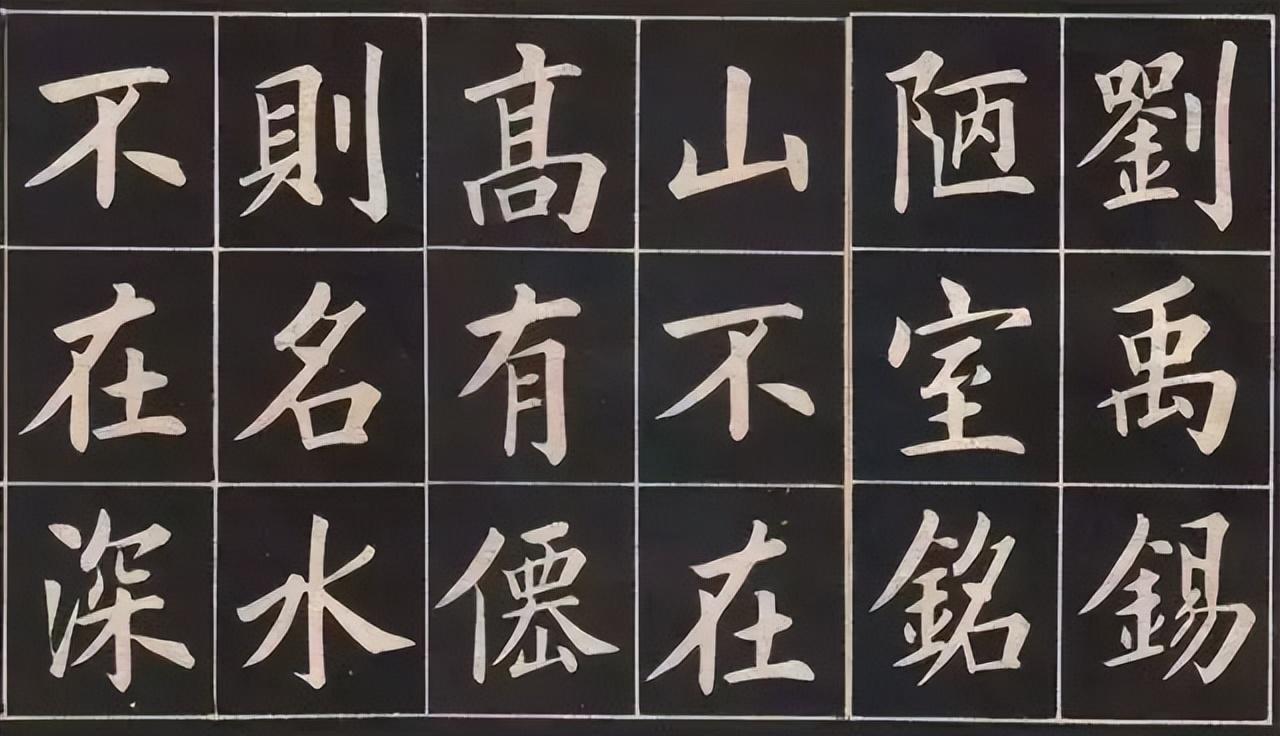 劉禹錫
陋室銘
山不在
高有僊
則名水
不在深